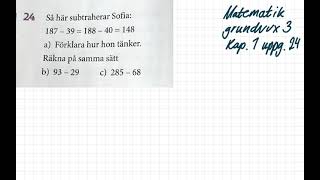 24 Så här subtraherar Sofia:
187 – 39 = 188 – 40 = 148
a) Förklara hur hon tänker.
Räkna på samma sätt
b) 93 – 29 c) 285 – 68
Matematik
grundvux 3
Kap. 1 uppg. 24